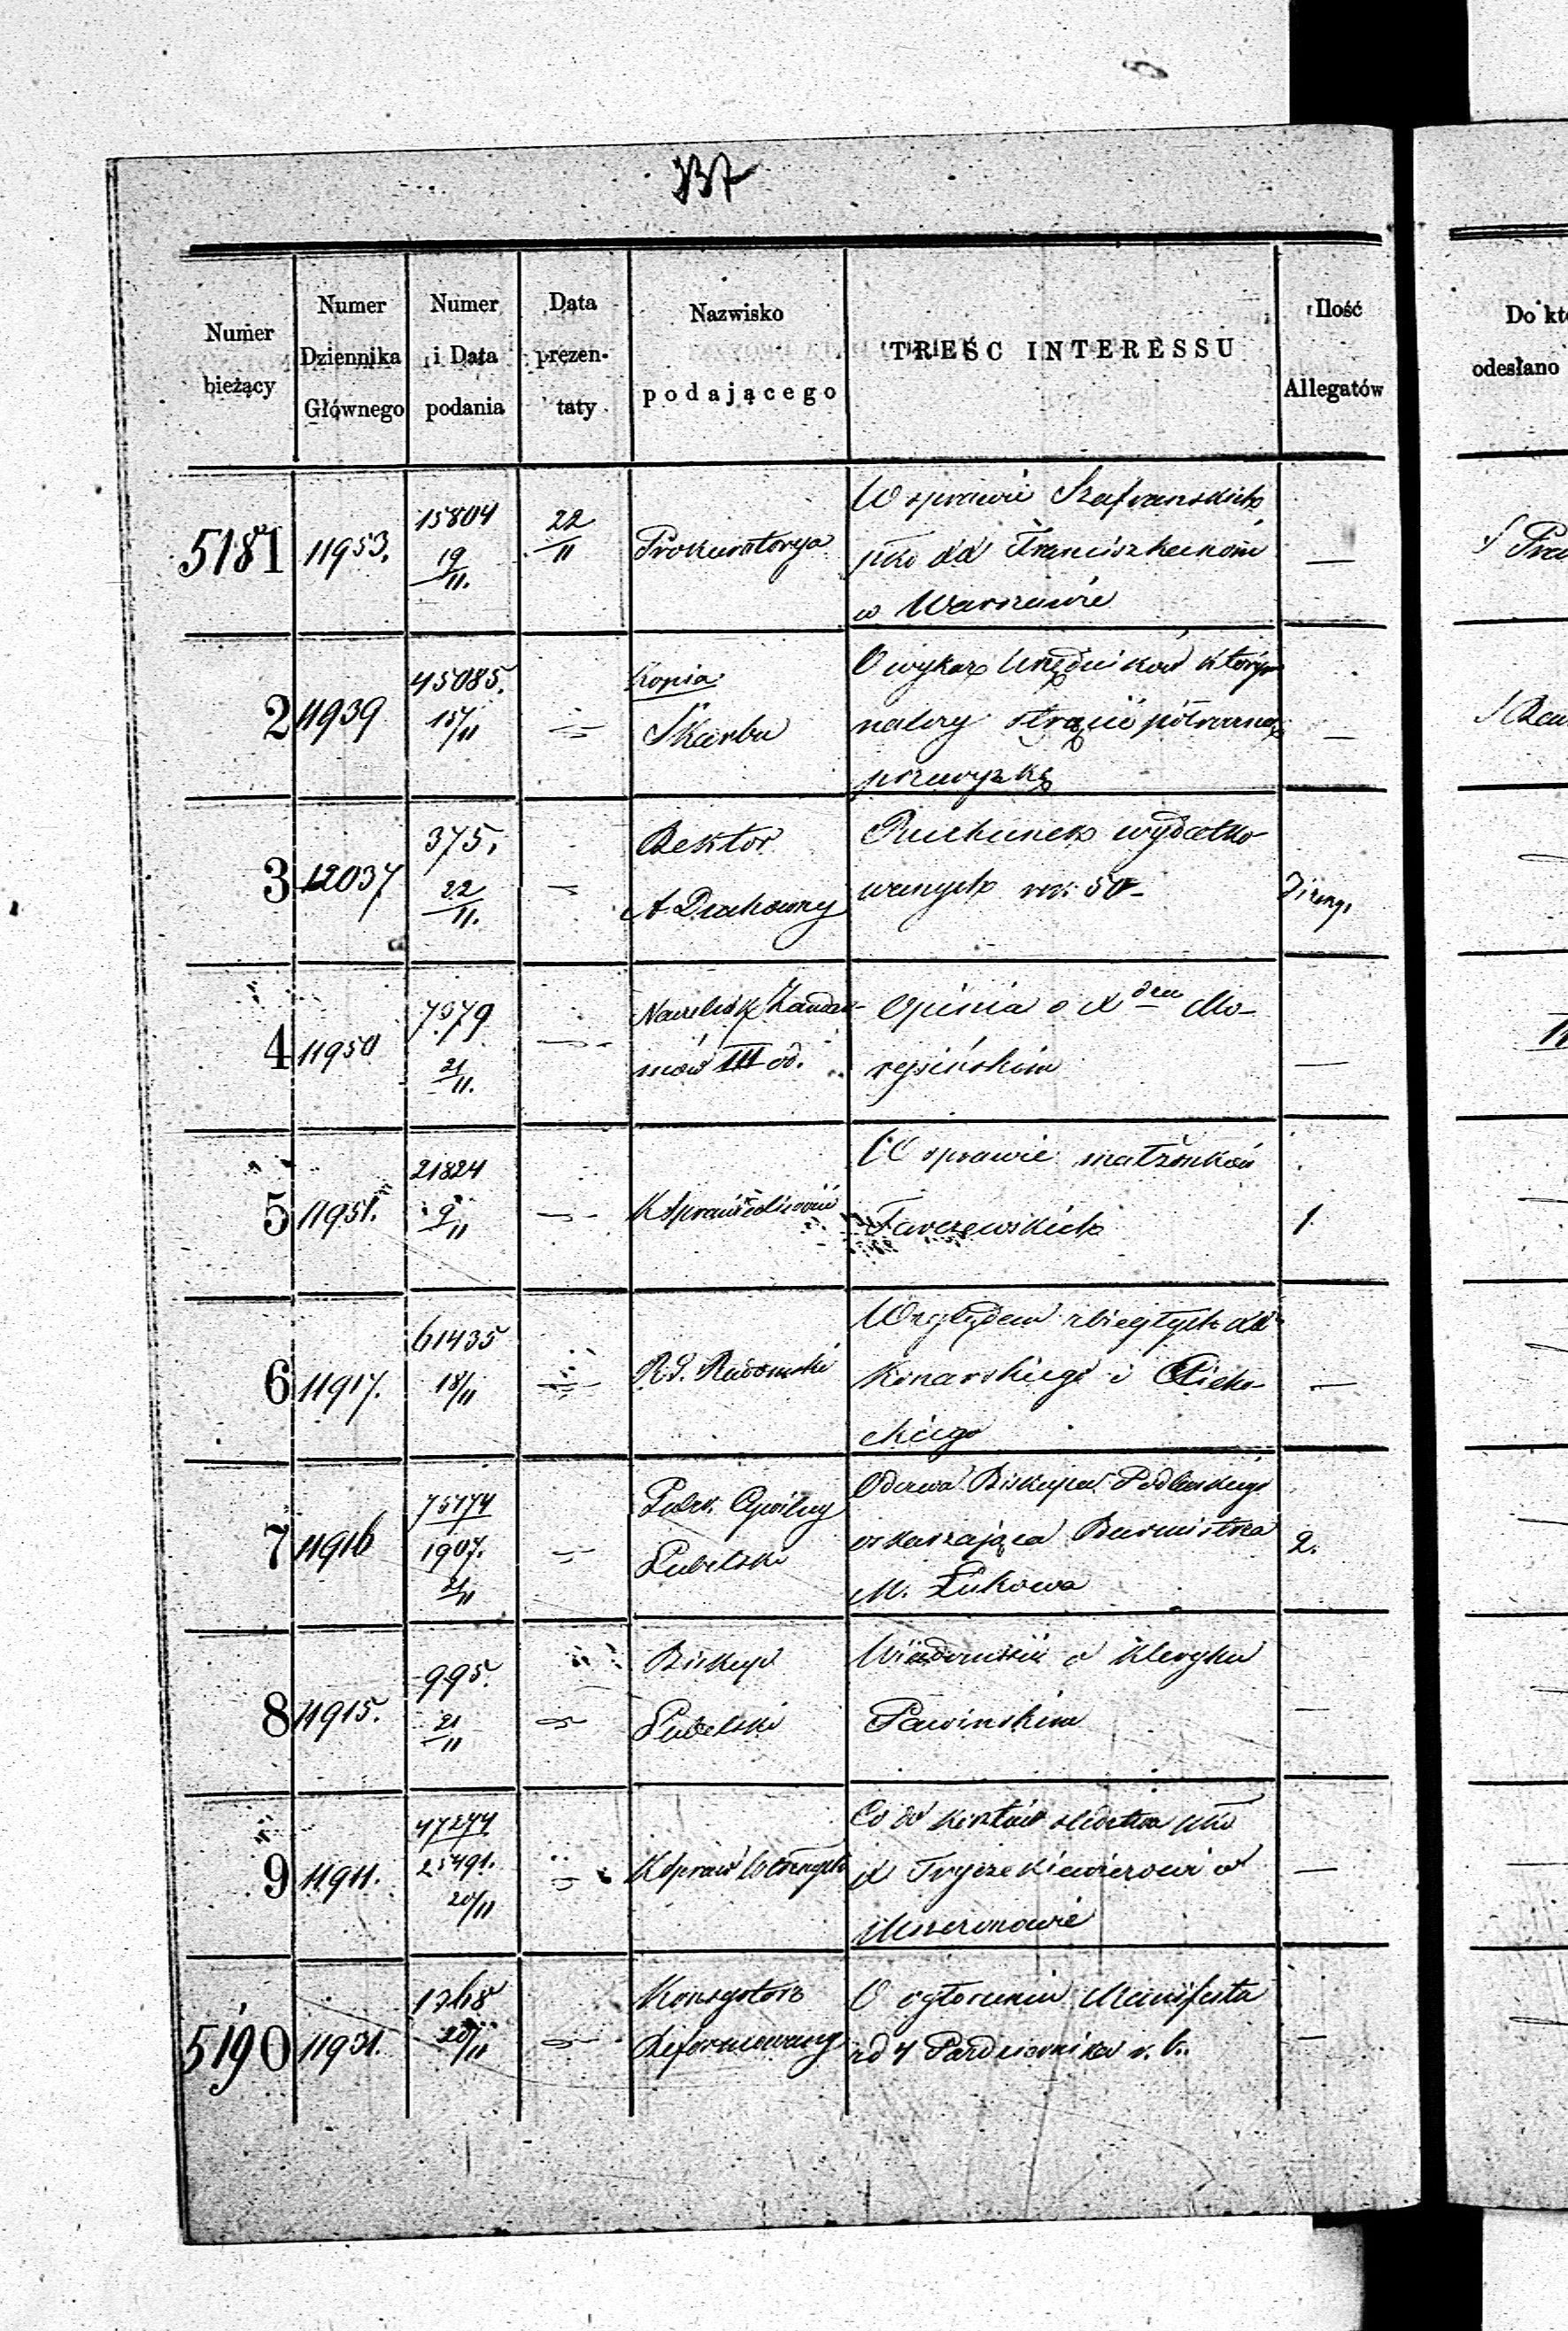 337
Numer bieżący | Numer Dziennika Głównego | Numer i Data podania | Data prezentaty | Nazwisko podającego | TREŚĆ INTERESSU | Ilość Allegatów
Do kt
odesłano
5181 | 11953. | 15804 19/11. | 22/11 | Prokuratorya | W sprawie Szafranskich
pko XX Franciszkanom
w Warszawie | —
2 | 11939 | 45085. 15/11 | — | Kopia
Skarbu | O wykaz Urzędników którym
należy strącić
przewyżkę | —
3 | 12037 | 375, 22/11. | — | Rektor
A. Duchowny | Rachunek wydatko-
wanych rs: 50 -
4 | 11950 | 7579 21/11. | — | Naczelnik Żandar-
mów III od. | Opinia o X dzu Mo-
| —
5 | 11951. | 21824 9/11 | — | K Sprawiedliwości | W sprawie małżonków
Tarczewskich | 1.
6 | 11917. | 61435 18/11 | — | R. G. Radomski | Względem zbiegłych XX
Konarskiego i
| —
7 | 11916 | 75174 1907. 21/11 | — | Gubr. Cywilny
Lubelski | Odezwa Biskupa Podlaskiego
oskarzająca Burmistrza
M. Łukowa | 2.
8 | 11915. | 995. 21/11 | — | Biskup
Lubelski | Wiadomość o Kleryku
Pawinskim | —
9 | 11911. | 47274 25491. 20/11 | — | K Spraw Wewnętrznych | Co do kosztów śledztwa pko
X w
Mszczonowie | —
5190 | 11931. | 1768 20/11 | — | Konsystorz
Reformowany | O ogłoszeniu Manifestu
z d 4 Października r. b. | —